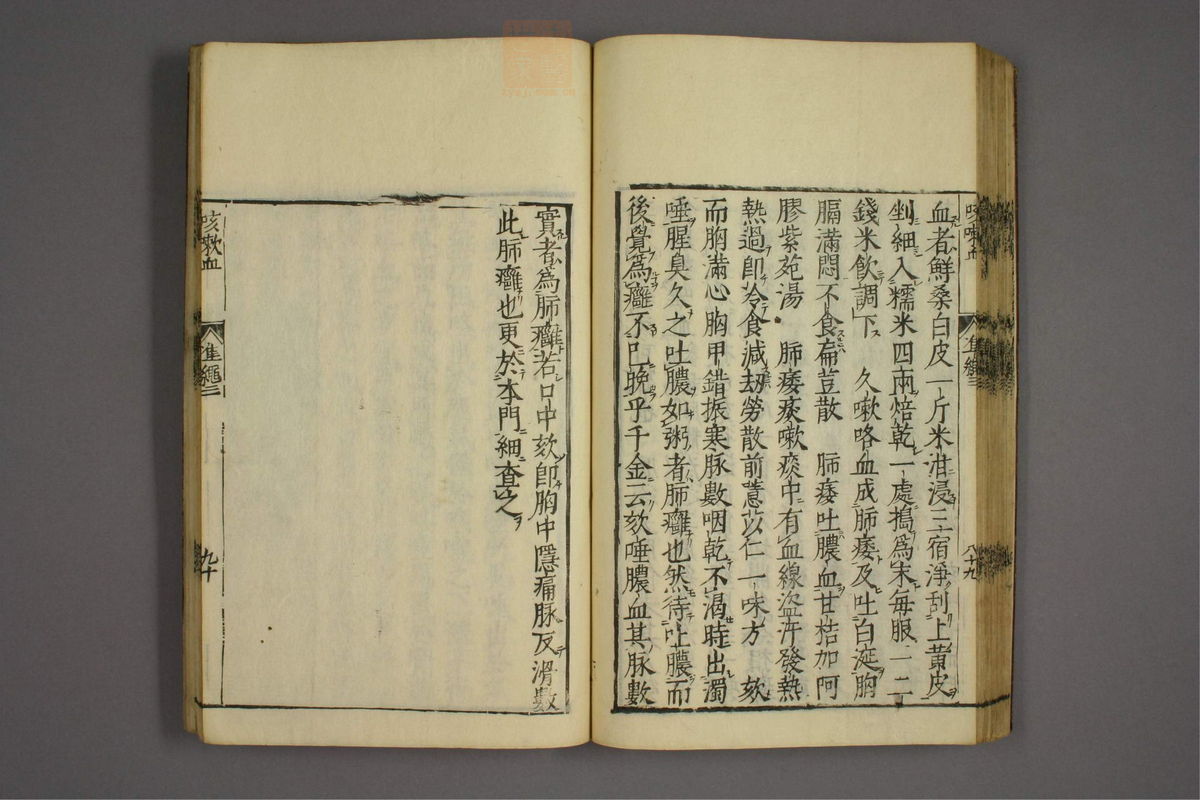 咳嗽血
準繩三
八十九
血者鮮桑白皮一斤米泔浸三宿淨刮上黃皮
剉細入糯米四兩焙乾一處搗爲末每服一二
錢米飲調下 久嗽咯血成肺痿及吐白涎胸
膈滿悶不食扁荳散 肺痿吐膿血甘桔加阿
膠紫菀湯 肺痿痰嗽痰中有血線盜汗發熱
熱過卽冷食減劫勞散前薏苡仁一味方 欬
而胸滿心胸甲錯振寒脉數咽乾不渴時出濁
唾腥臭久之吐膿如粥者肺癰也然待吐膿而
後覺爲癰不已晚乎千金云欬唾膿血其脉數
實者爲肺癰若口中欬卽胸中隱痛脉反滑數
此肺癰也更於本門細查之
咳嗽血
準繩三
九十